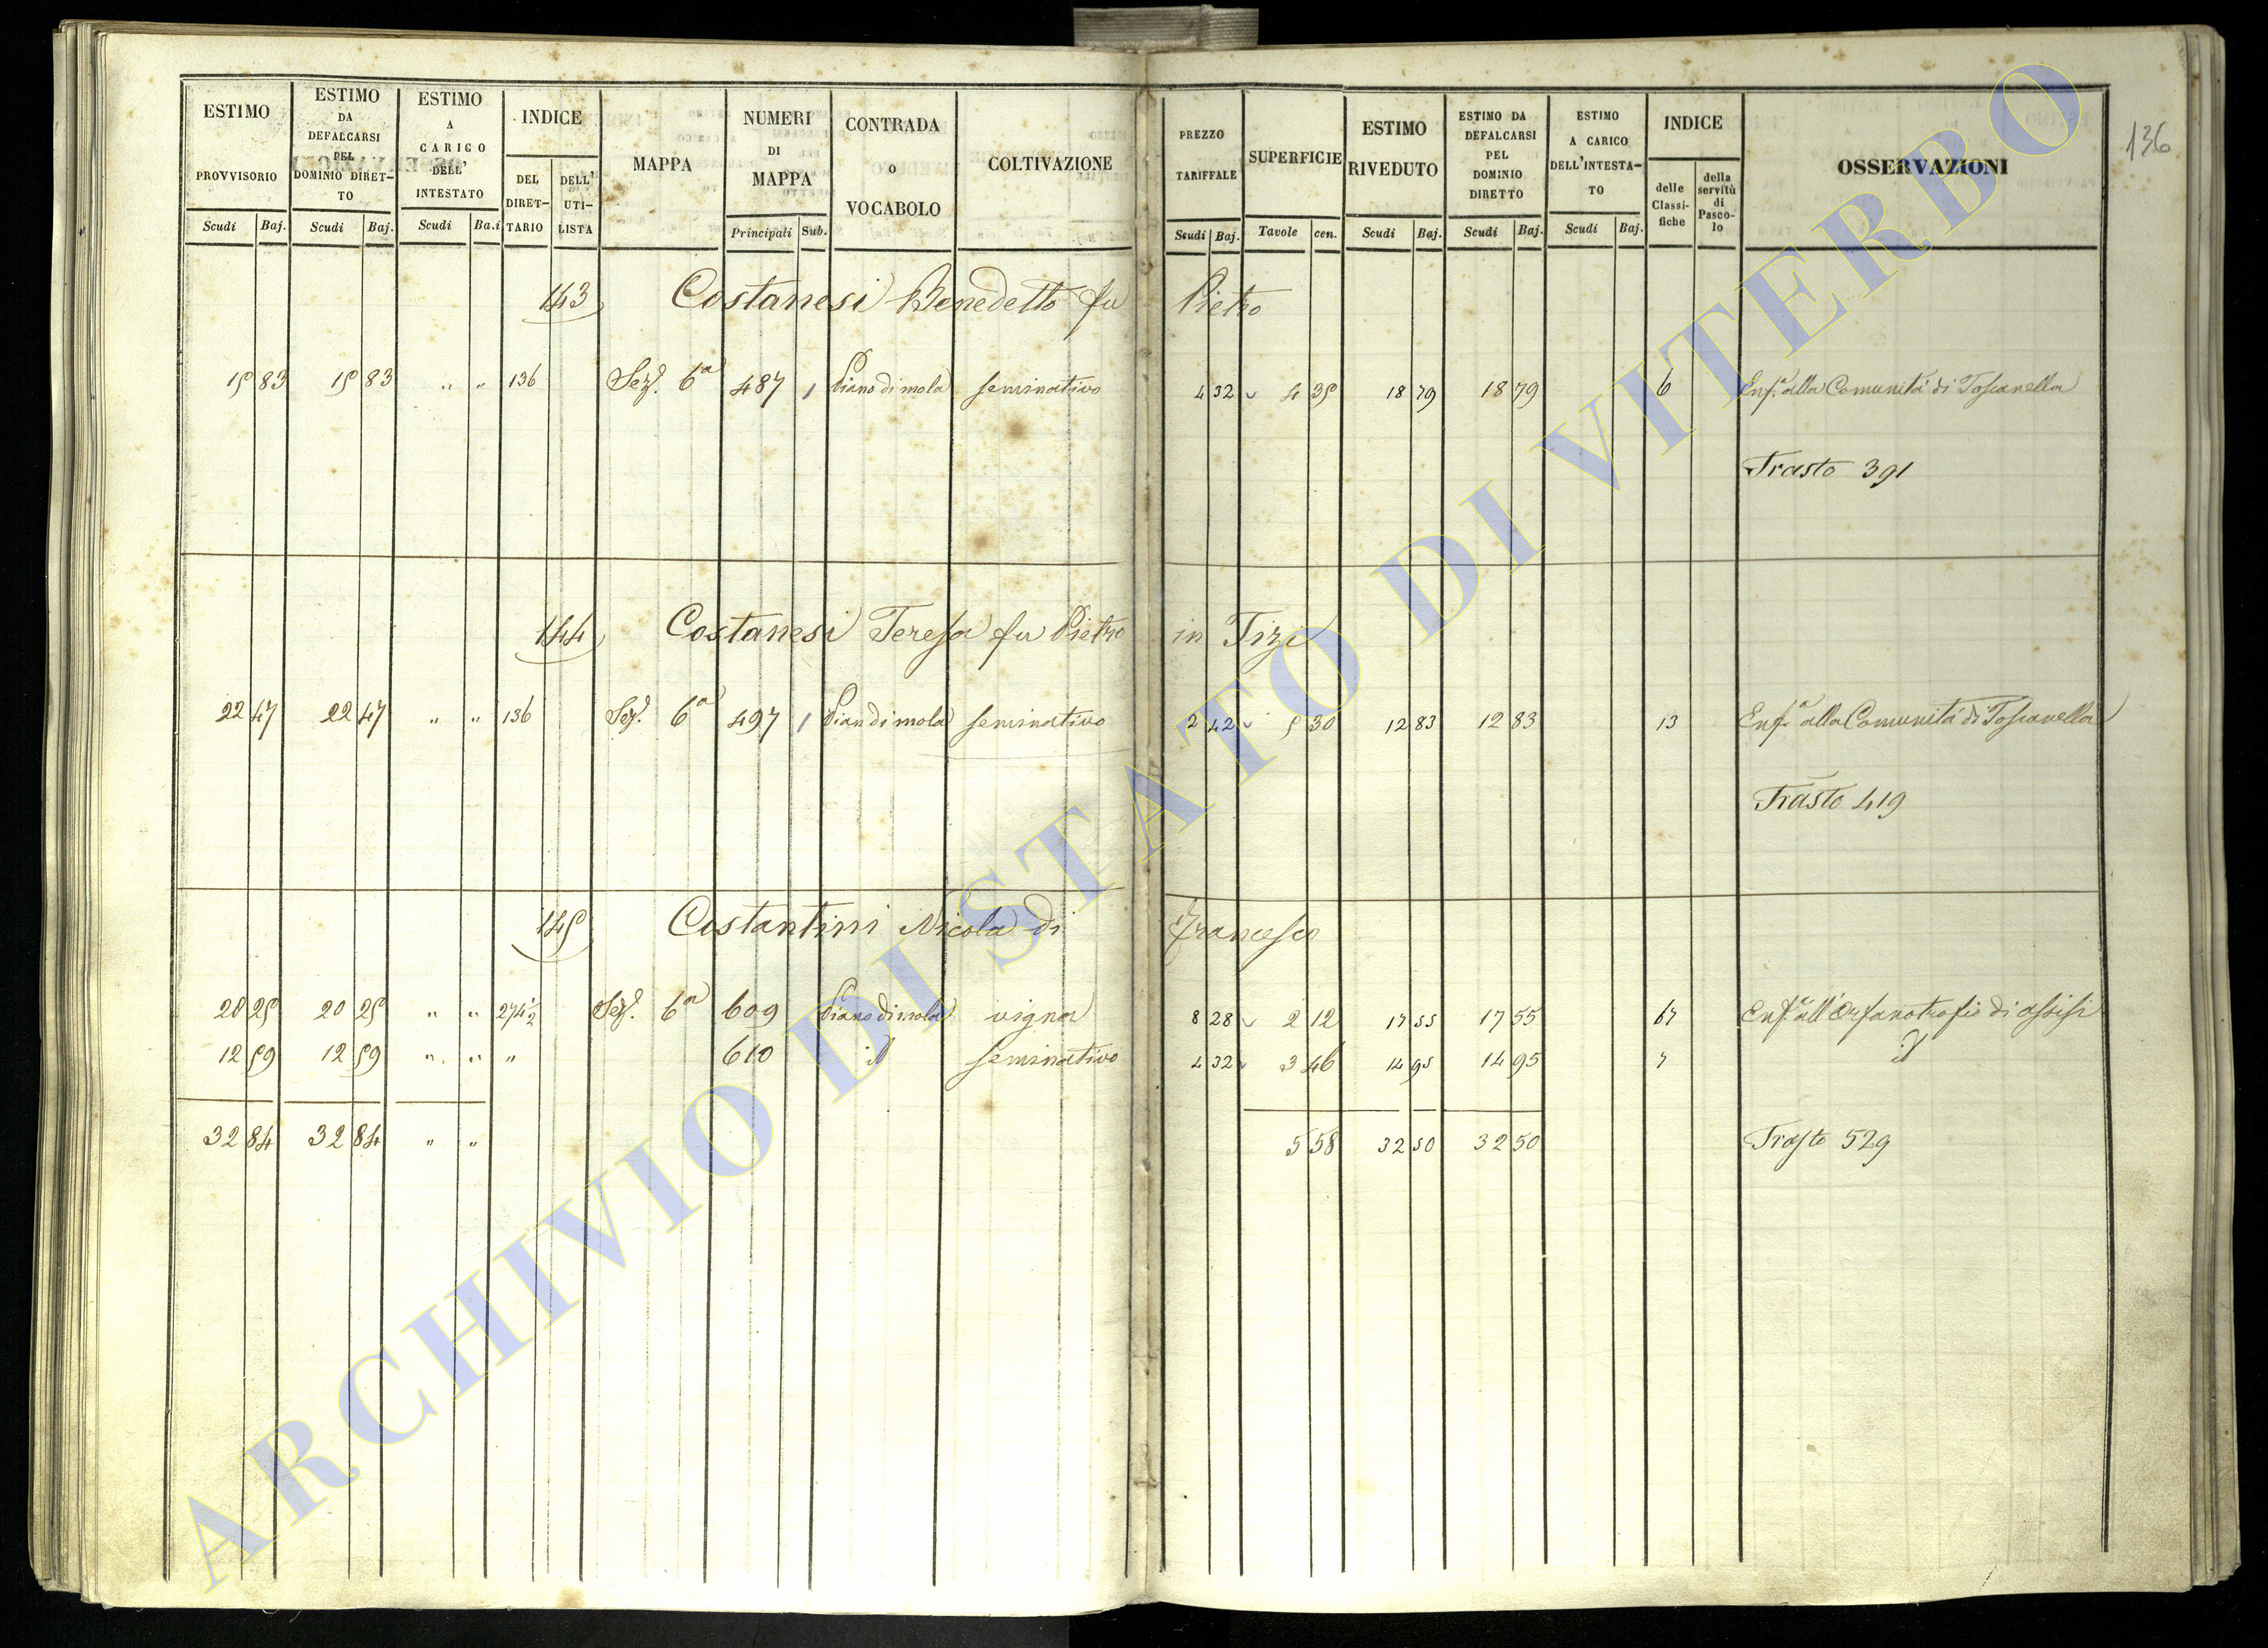 136
ESTIMO PROVVISORIO Scudi Baj.
ESTIMO DA DEFALCARSI PEL DOMINIO DIRET-TO Scudi Baj.
ESTIMO A CARICO DELL' INTESTATO Scudi Ba.i
INDICE DEL DIRET-TARIO DELL' UTI-LISTA
MAPPA
NUMERI DI MAPPA Principali Sub.
CONTRADA o VOCABOLO
COLTIVAZIONE
PREZZO TARIFFALE Scudi Baj.
SUPERFICIE Tavole cen.
ESTIMO RIVEDUTO Scudi Baj.
ESTIMO DA DEFALCARSI PEL DOMINIO DIRETTO Scudi Baj.
ESTIMO A CARICO DELL'INTESTA-TO Scudi Baj.
INDICE delle Classi-fiche della servitù di Pasco-lo
OSSERVAZIONI
143 Costanesi Benedetto fu Pietro
15 83 15 83 " " 136 Sez.e 6a 487 1 Piano di mola seminativo 4 32 4 35 18 79 18 79 6 Enf.a alla Comunità di Toscanella
Trasto 391
144 Costanesi Teresa fu Pietro in Tizi
22 47 22 47 " " 136 Sez.e 6a 497 1 Pian di mola seminativo 2 42 5 30 12 83 12 83 13 Enf.a alla Comunità di Toscanella
Trasto 419
145 Costantini Nicola di Francesco
20 25 20 25 " " 274½ Sez.e 6a 609 Piano di mola vigna 8 28 2 12 17 55 17 55 67 Enf.a all'Orfanotrofio di Assisi
12 59 12 59 " " " 610 id seminativo 4 32 3 46 14 95 14 95 7 id
32 84 32 84 " " 5 58 32 50 32 50 Trasto 529
ARCHIVIO DI STATO DI VITERBO